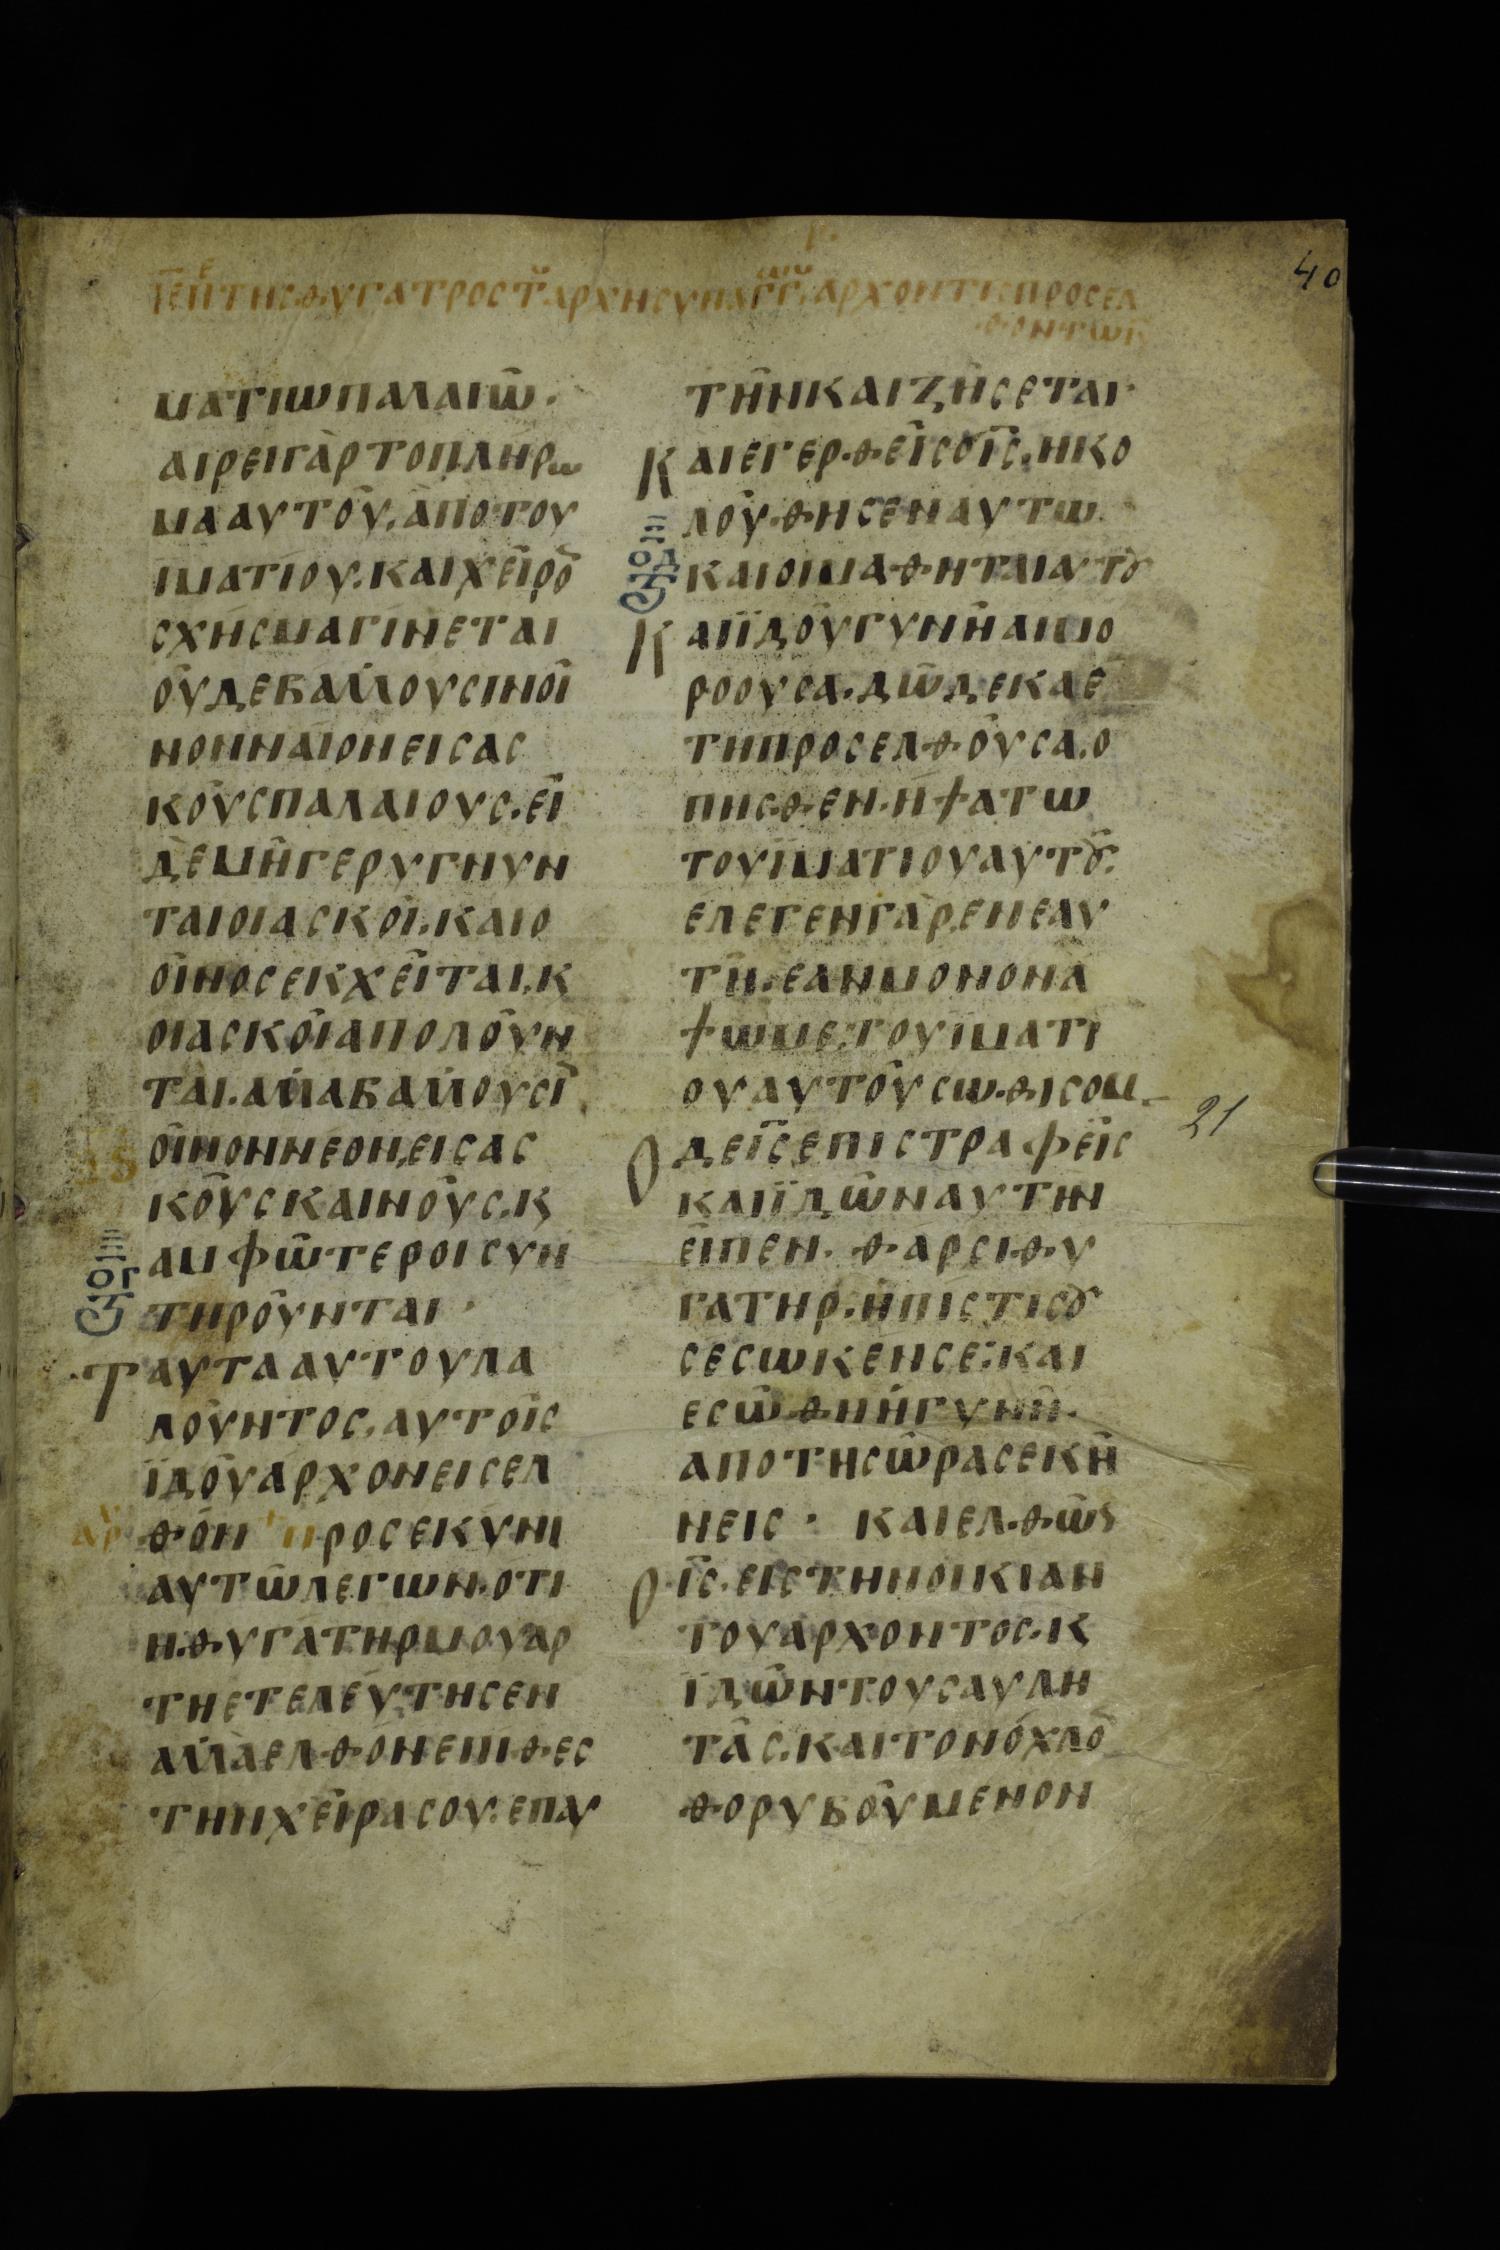 40
ΙΕ ΠΕ ΤΗΣ ΘΥΓΑΤΡΟΣ Τ ΑΡΧΗΣΥΝΑΓΓ ΑΡΧΟΝΤΙ ΠΡΟΣΕΛ
ΘΟΝΤΩΝ
ΜΑΤΙΩ ΠΑΛΑΙΩ̑.
ΑΙΡΕΙ ΓᾺΡ ΤΟ ΠΛΗΡΩ
ΜΑ ΑΥΤΟΥ̑, ἈΠΟ ΤΟΥ
ΙΜΑΤΙΟΥ. ΚΑΙ ΧΕΙ̑ΡΟ̅
ΣΧΗΣΜΑ ΓΙΝΕΤΑΙ
ΟΥ̓ΔΕ ΒΑΛΛΟΥΣΙΝ ΟΙ̑
ΝΟΝ ΝΑΙΟΝ ΕΙΣ ΑΣ
ΚΟΥ̑Σ ΠΑΛΑΙΟΥΣ. ΕΙ̑
ΔῈ ΜΗ̑ ΓΕ ΡΥΓΝΥΝ
ΤΑΙ ΟΙ ΑΣΚΟΙ̑. ΚΑΙ Ο
ΟΙ̑ΝΟΣ ΕΚΧΕΙ̑ΤΑΙ, Κ
ΟΙ ΑΣΚΟΙ̑ ΑΠΟΛΟΥ̑Ν
ΤΑΙ. ΑΛΛΑ ΒΑΛΛΟΥΣΙ̅
ΟΙ̑ΝΟΝ ΝΕΟΝ, ΕΙΣ ΑΣ
ΚΟΥ̑Σ ΚΑΙΝΟΥ̑Σ, Κ
ΑΜΦΩ̑ΤΕΡΟΙ ΣΥΝ
ΤΗΡΟΥ̑ΝΤΑΙ.
ΟΓ
ΤΑΥΤΑ ΑΥΤΟΥ ΛΑ
ΛΟΥ̑ΝΤΟΣ, ΑΥΤΟΙ̑Σ
ΪΔΟΥ̑ ΑΡΧΟΝ ΕΙΣΕΛ
ΘΟΝ ΠΡΟΣΕΚΥΝΙ
ΑΥΤΩ̑ ΛΕΓΩΝ. ΟΤΙ
Η ΘΥΓΑΤΗΡ ΜΟΥ ΑΡ
ΤΗ ΕΤΕΛΕΥΤΗΣΕΝ
ΑΛΛᾺ ΕΛΘΟΝ ΕΠΙΘΕΣ
ΤΗΝ ΧΕΙ̑ΡΑ ΣΟΥ. ΕΠ ΑΥ
ΤΗ̑Ν ΚΑΙ ΖΗ̑ΣΕΤΑΙ·
ΚΑΙ ΕΓΕΡΘΕΙ̑Σ Ο Ι̅Σ̅. ΗΚΟ
ΛΟΥ̑ΘΗΣΕΝ ΑΥΤΩ
ΚΑΙ ΟΙ ΜΑΘΗΤΑΙ ΑΥΤΟΥ
ΟΔ
ΚΑΙ ΪΔΟΥ̑ ΓΥΝΗ̑ ΑΙΜΟ
ΡΟΟΥΣΑ. ΔΩ̑ΔΕΚΑ Ε
ΤΗ ΠΡΟΣΕΛΘΟΥ̑ΣΑ. Ο
ΠΗΣΘΕΝ. ΗΨΑΤΩ
ΤΟΥ ΪΜΑΤΙΟΥ ΑΥΤΟΥ̑.
ΕΛΕΓΕΝ ΓᾺΡ, ΕΝ ΕΑΥ
ΤΗ̑. ΕΑΝ ΜΟΝΟΝ Α
ΨΩΜΕ, ΤΟΥ ΪΜΑΤΙ
ΟΥ ΑΥΤΟΥ̑ ΣΩΘΙΣΟΜ
Ο ΔΕ Ι̅Σ̅ ΕΠΙΣΤΡΑΦΕΙ̑Σ
21
ΚΑΙ ΪΔΩ̑Ν ΑΥΤΗΝ
ΕΙ̑ΠΕΝ. ΘΑΡΣΙ ΘΥ
ΓΑΤΗΡ. Η ΠΙΣΤΙ ΣΟΥ
ΣΕΣΩΚΕΝ ΣΕ: ΚΑΙ
ΕΣΩ̑ΘΗ Η ΓΥΝΗ̑.
ΑΠΟ ΤΗΣ Ω̑ΡΑΣ ΕΚΗ̑
ΝΕΙΣ. ΚΑΙ ΕΛΘΩ̑Ν
Ο Ι̅Σ̅. ΕΙΣ ΤΗΝ ΟΙΚΙΑΝ
ΤΟΥ ΑΡΧΟΝΤΟΣ. Κ
ΪΔΩ̑Ν ΤΟΥΣ ΑΥΛΗ
ΤΑ̑Σ. ΚΑΙ ΤΟΝ ΟΧΛΟ̅
ΘΟΡΥΒΟΥ̑ΜΕΝΟΝ